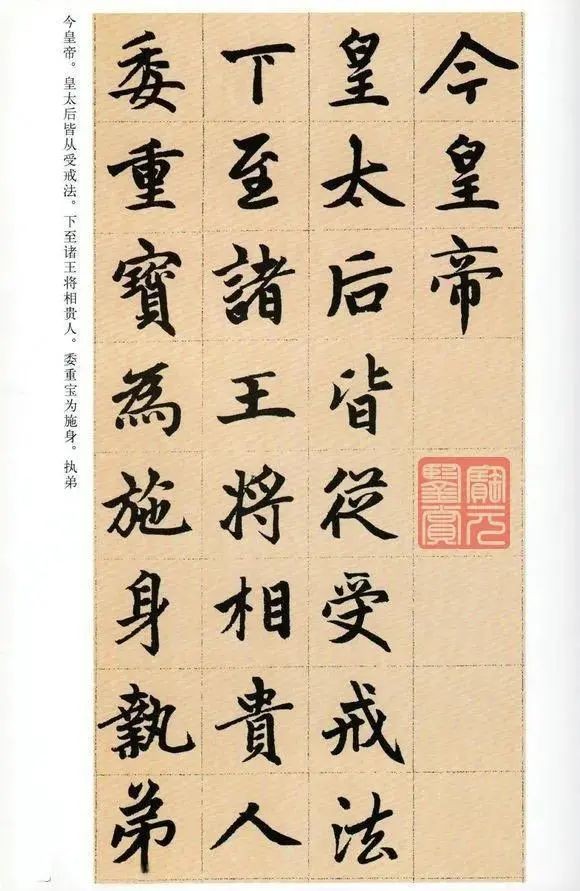 今皇帝
皇太后皆從受戒法
下至諸王將相貴人
委重寶為施身執弟
今皇帝。皇太后皆从受戒法。下至诸王将相贵人。委重宝为施身。执弟